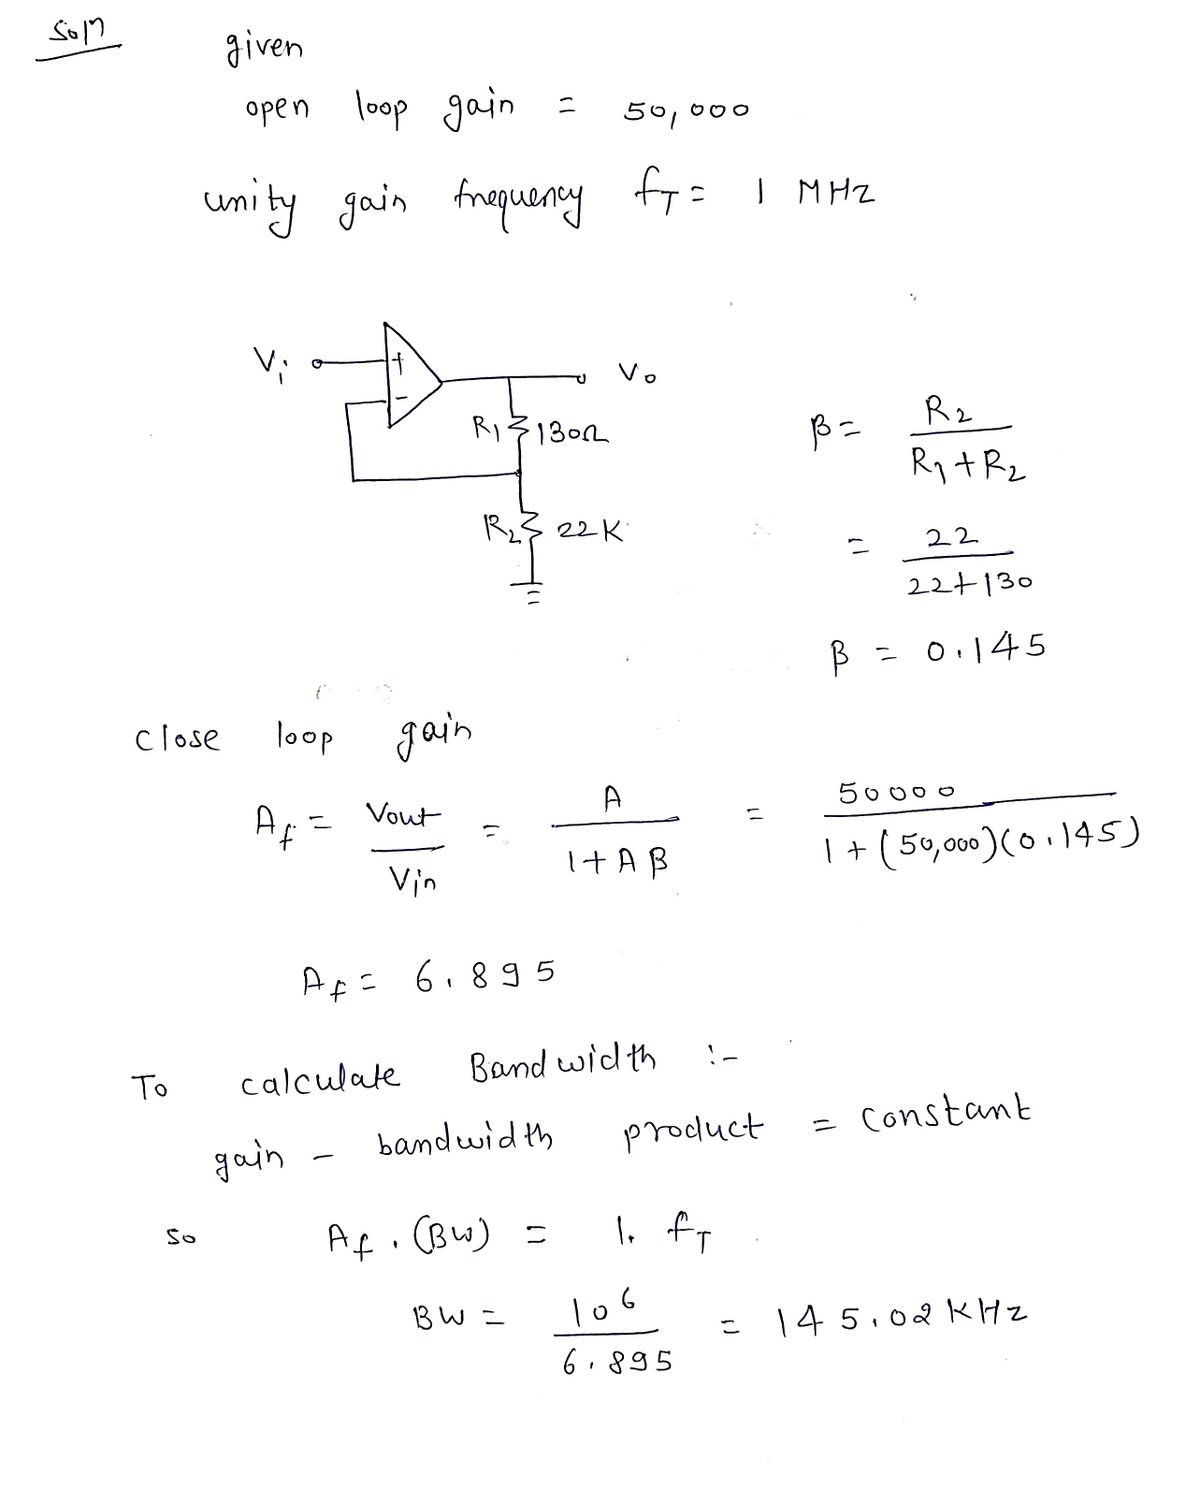 Soln
given
open loop gain = 50,000
unity gain frequency fT = 1 MHz
Vi
+
-
Vo
R1 130Ω
R2 22K
β = R2 / R1 + R2
= 22 / 22+130
β = 0.145
close loop gain
Af = Vout / Vin = A / 1 + Aβ = 50000 / 1 + (50,000)(0.145)
Af = 6.895
To calculate Bandwidth :-
gain - bandwidth product = constant
so Af . (BW) = 1. fT
BW = 10^6 / 6.895 = 145.02 KHz